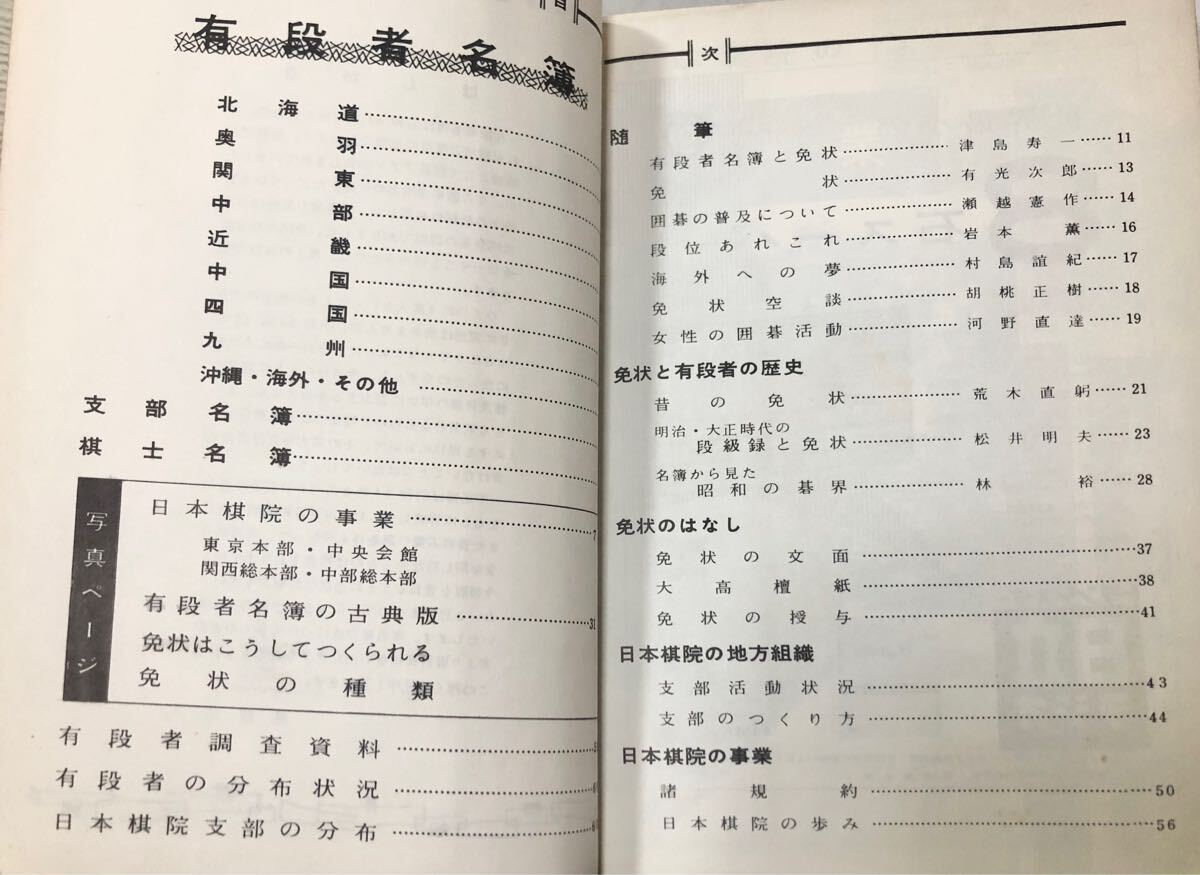 有段者名簿
北海道
奥羽
関東
中部
近畿
中国
四国
九州
沖縄・海外・その他
支部名簿
棋士名簿
写真ページ
日本棋院の事業 7
東京本部・中央会館
関西総本部・中部総本部
有段者名簿の古典版 31
免状はこうしてつくられる
免状の種類
有段者調査資料
有段者の分布状況
日本棋院支部の分布
次
随筆
有段者名簿と免状 津島寿一 11
免状 有光次郎 13
囲碁の普及について 瀬越憲作 14
段位あれこれ 岩本薫 16
海外への夢 村島誼紀 17
免状空談 胡桃正樹 18
女性の囲碁活動 河野直達 19
免状と有段者の歴史
昔の免状 荒木直躬 21
明治・大正時代の
段級録と免状 松井明夫 23
名簿から見た
昭和の碁界 林裕 28
免状のはなし
免状の文面 37
大高檀紙 38
免状の授与 41
日本棋院の地方組織
支部活動状況 43
支部のつくり方 44
日本棋院の事業
諸規約 50
日本棋院の歩み 56